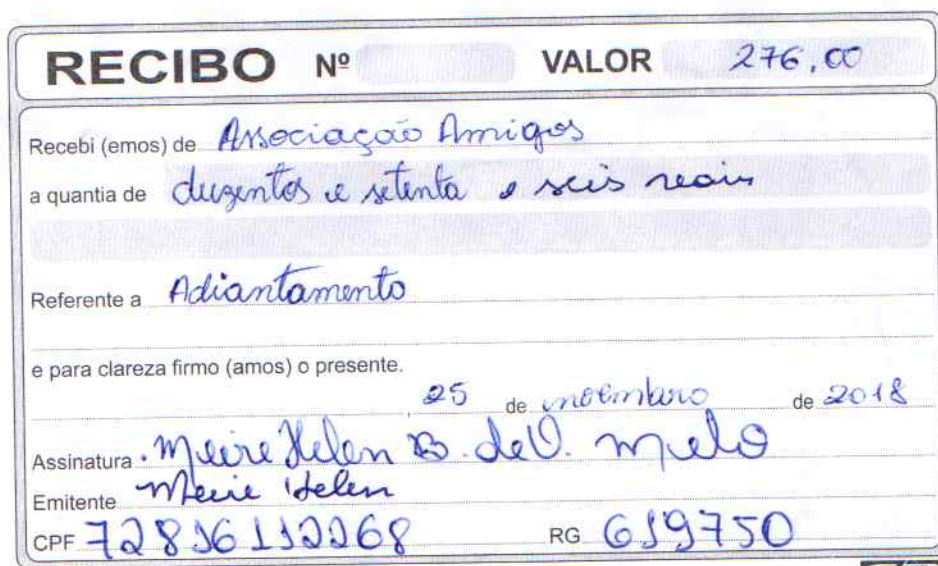 RECIBO Nº VALOR 276,00
Recebi (emos) de Associação Amigos
a quantia de duzentos e setenta e seis reais
Referente a Adiantamento
e para clareza firmo (amos) o presente.
, 25 de novembro de 2018
Assinatura Meire Helen B. de O. Melo
Emitente Meire Helen
CPF 72816112268 RG 619750